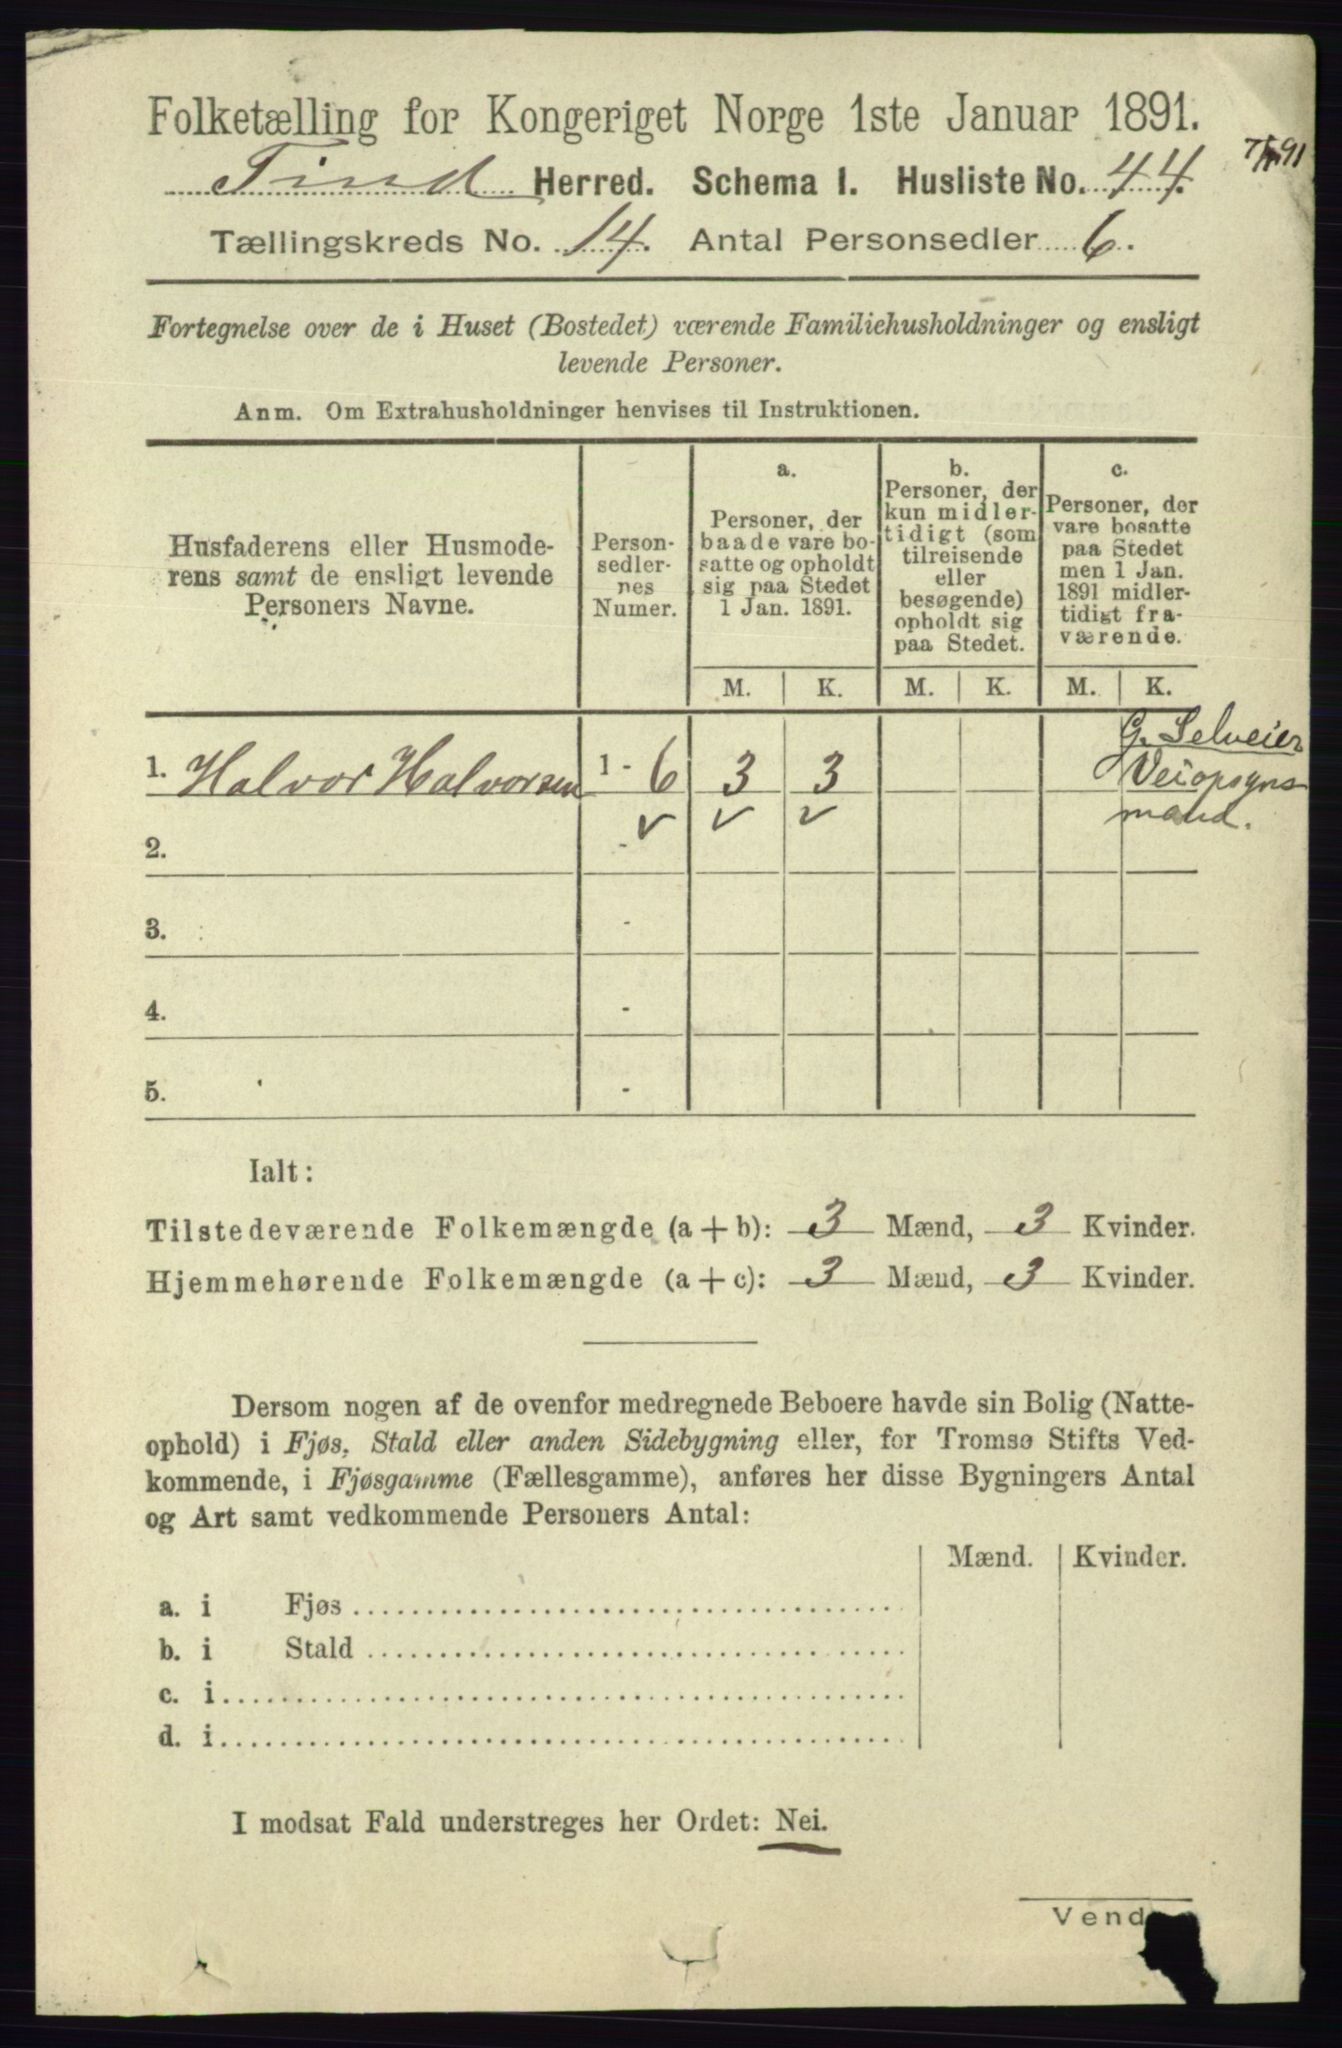 Folketælling for Kongeriget Norge 1ste Januar 1891.
Tind Herred. Schema I. Husliste No. 44.
Tællingskreds No. 14. Antal Personsedler 6.
Fortegnelse over de i Huset (Bostedet) værende Familiehusholdninger og ensligt
levende Personer.
Anm. Om Extrahusholdninger henvises til Instruktionen.
Husfaderens eller Husmode-
rens samt de ensligt levende
Personers Navne.
Person-
sedler-
nes
Numer.
a.
Personer, der
baade vare bo-
satte og opholdt
sig paa Stedet
1 Jan. 1891.
b.
Personer, der
kun midler-
tidigt (som
tilreisende
eller
besøgende)
opholdt sig
paa Stedet.
c.
Personer, der
vare bosatte
paa Stedet
men 1 Jan.
1891 midler-
tidigt fra-
værende.
M. K. M. K. M. K.
1. Halvor Halvorsen 1 - 6 3 3
G. Selveier
Veiopsyns
mand.
2. -
3. -
4. -
5. -
Ialt:
Tilstedeværende Folkemængde (a + b): 3 Mænd, 3 Kvinder.
Hjemmehørende Folkemængde (a + c): 3 Mænd, 3 Kvinder.
Dersom nogen af de ovenfor medregnede Beboere havde sin Bolig (Natte-
ophold) i Fjøs, Stald eller anden Sidebygning eller, for Tromsø Stifts Ved-
kommende, i Fjøsgamme (Fællesgamme), anføres her disse Bygningers Antal
og Art samt vedkommende Personers Antal:
Mænd. Kvinder.
a. i Fjøs
b. i Stald
c. i
d. i
I modsat Fald understreges her Ordet: Nei.
Vend